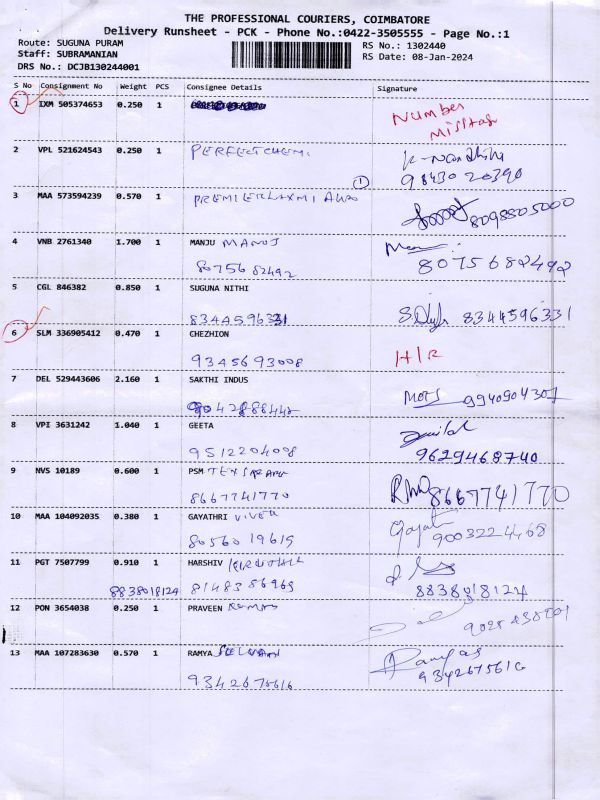 THE PROFESSIONAL COURIERS, COIMBATORE
Delivery Runsheet - PCK - Phone No.:0422-3505555 - Page No.:1
Route: SUGUNA PURAM
Staff: SUBRAMANIAN
DRS No.: DCJB130244001
RS No.: 1302440
RS Date: 08-Jan-2024
S No Consignment No Weight PCS Consignee Details Signature
1 IXM 505374653 0.250 1
Number
2 VPL 521624543 0.250 1 PERFECTCHEMI K-Nandhini
9843020390
1
3 MAA 573594239 0.570 1 PREMIERLAXMI
8098805000
4 VNB 2761340 1.700 1 MANJU MANOJ
8075682492 8075682492
5 CGL 846382 0.850 1 SUGUNA NITHI
8344596331 8344596331
6 SLM 336905412 0.470 1 CHEZHION
9345693008 H/R
7 DEL 529443606 2.160 1 SAKTHI INDUS
9940904307
8 VPI 3631242 1.040 1 GEETA
9512204098 9629468740
9 NVS 10189 0.600 1 PSM
8667741770 8667741770
10 MAA 104092035 0.380 1 GAYATHRI VIVEK Gayatri
8056019615 9003224468
11 PGT 7507799 0.910 1 HARSHIV
8838018124 8148386969 8838018124
12 PON 3654038 0.250 1 PRAVEEN
13 MAA 107283630 0.570 1 RAMYA SELVAN Ramyas
9342675616 9342675616